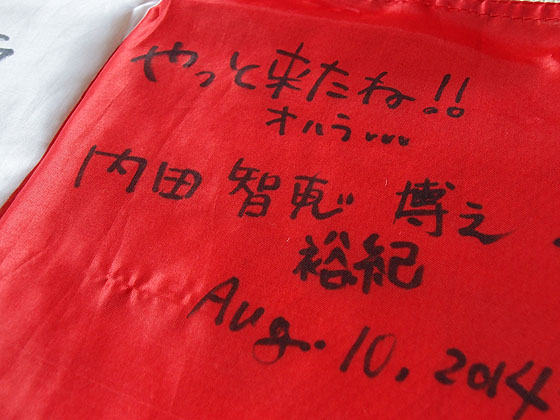 やっと来たね!!
オハラ...
内田 智恵 博之
裕紀
Aug. 10, 2014